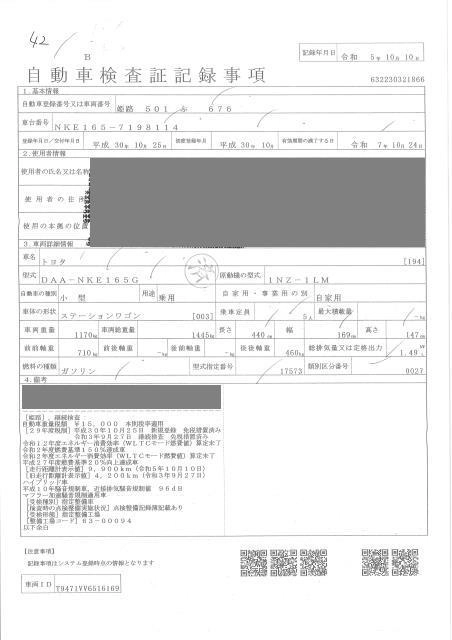 42
B
記録年月日 令和 5年 10月 10日
自動車検査証記録事項
632230321866
1.基本情報
自動車登録番号又は車両番号 姫路 501 ぶ 676
車台番号 NKE165-7198114
登録年月日/交付年月日 平成 30年 10月 25日 初度登録年月 平成 30年 10月 有効期間の満了する日 令和 7年 10月 24日
2.使用者情報
使用者の氏名又は名称
使用者の住所
使用の本拠の位置
3.車両詳細情報
車名 トヨタ [194]
型式 DAA-NKE165G 原動機の型式 1NZ-1LM
自動車の種別 小型 用途 乗用 自家用・事業用の別 自家用
車体の形状 ステーションワゴン [003] 乗車定員 5人 最大積載量 -kg
車両重量 1170kg 車両総重量 1445kg 長さ 440cm 幅 169cm 高さ 147cm
前前軸重 710kg 前後軸重 -kg 後前軸重 -kg 後後軸重 460kg 総排気量又は定格出力 1.49
燃料の種類 ガソリン 型式指定番号 17573 類別区分番号 0027
4.備考
[姫路],継続検査
自動車重量税額 ¥15,000 本則税率適用
[29年度税制]平成30年10月25日 新規登録 免税措置済み
令和3年9月27日 継続検査 免税措置済み
令和12年度エネルギー消費効率(WLTCモード燃費値)算定未了
令和2年度燃費基準150%達成車
令和2年度エネルギー消費効率(WLTCモード燃費値)算定未了
平成27年度燃費基準20%向上達成車
[走行距離計表示値]9,900km(令和5年10月10日)
[旧走行距離計表示値]4,200km(令和3年9月27日)
ハイブリッド車
平成10年騒音規制車,近接排気騒音規制値 96dB
マフラー加速騒音規制適用車
[受検種別]指定整備車
[検査時の点検整備実施状況]点検整備記録簿記載あり
[受検形態]指定整備工場
[整備工場コード]63-00094
以下余白
[注意事項]
記録事項はシステム登録時点の情報となります
車両ID T9471VV6516169